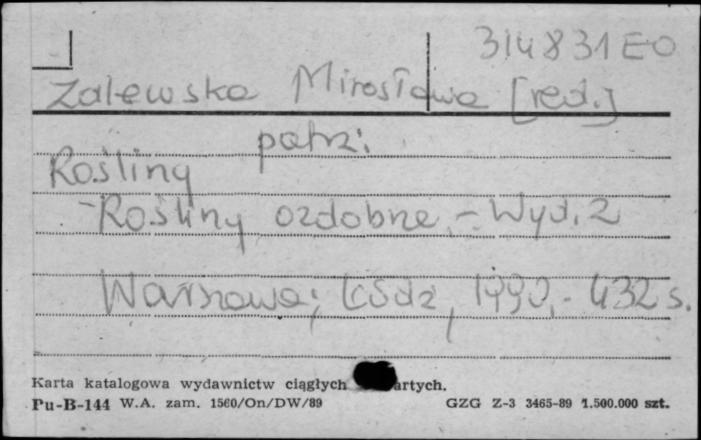 314831 EO
Zalewska Mirosława [red.]
patrz:
Rośliny
- Rośliny ozdobne. - Wyd. 2
Warszawa; Łódź, 1990. - 432 s.
Karta katalogowa wydawnictw ciągłych artych.
Pu-B-144 W.A. zam. 1560/On/DW/89 GZG Z-3 3465-89 1.500.000 szt.